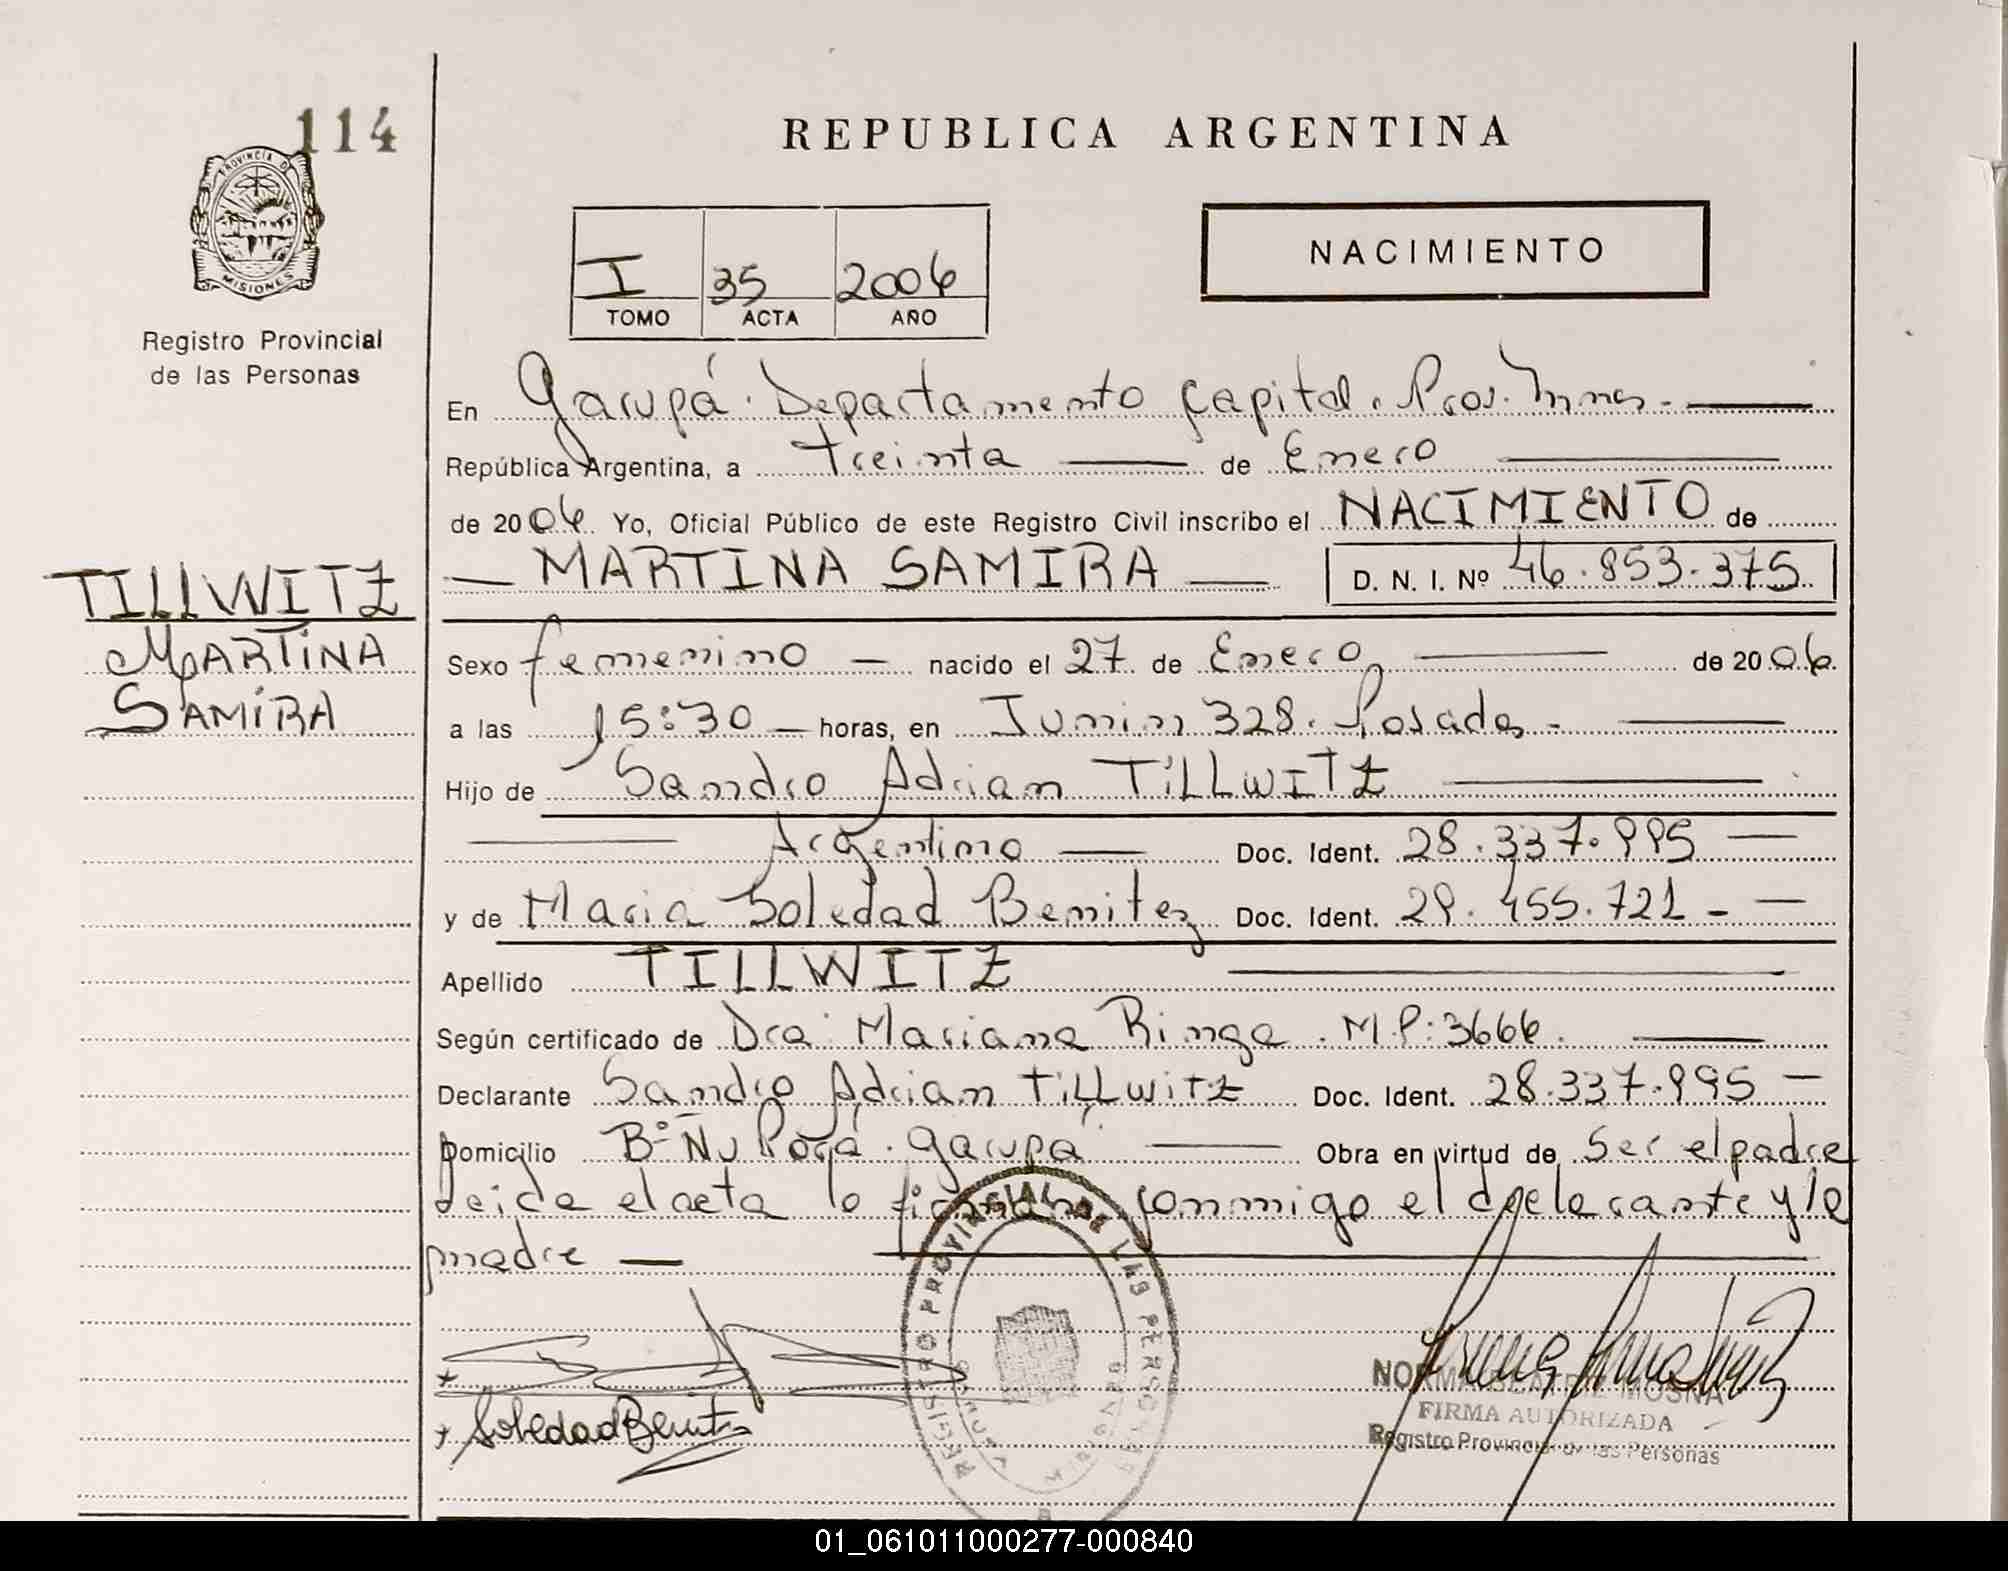 114
PROVINCIA DE
MISIONES
Registro Provincial
de las Personas
TILLWITZ
MARTINA
SAMIRA
REPUBLICA ARGENTINA
I 35 2006
TOMO ACTA AÑO
NACIMIENTO
En Garupá. Departamento Capital. Prov. Mnes.
República Argentina, a treinta de Enero
de 2006 Yo, Oficial Público de este Registro Civil inscribo el NACIMIENTO de
MARTINA SAMIRA D. N. I. Nº 46.853.375
Sexo femenino nacido el 27 de Enero de 2006.
a las 15:30 horas, en Junin 328. Posadas
Hijo de Sandro Adrian TILLWITZ
Argentino Doc. Ident. 28.337.995
y de Maria Soledad Benitez Doc. Ident. 29.455.721
Apellido TILLWITZ
Según certificado de Dra. Mariana Ringa. M.P:3666.
Declarante Sandro Adrian TILLWITZ Doc. Ident. 28.337.995
Domicilio Bº Ñu Porá. Garupá Obra en virtud de Ser el padre
leida el acta la firman conmigo el declarante y la
madre
REGISTRO PROVINCIAL DE LAS PERSONAS
Soledad Benitez
NORMA BEATRIZ MOSNA
FIRMA AUTORIZADA
Registro Provincial de las Personas
01_061011000277-000840